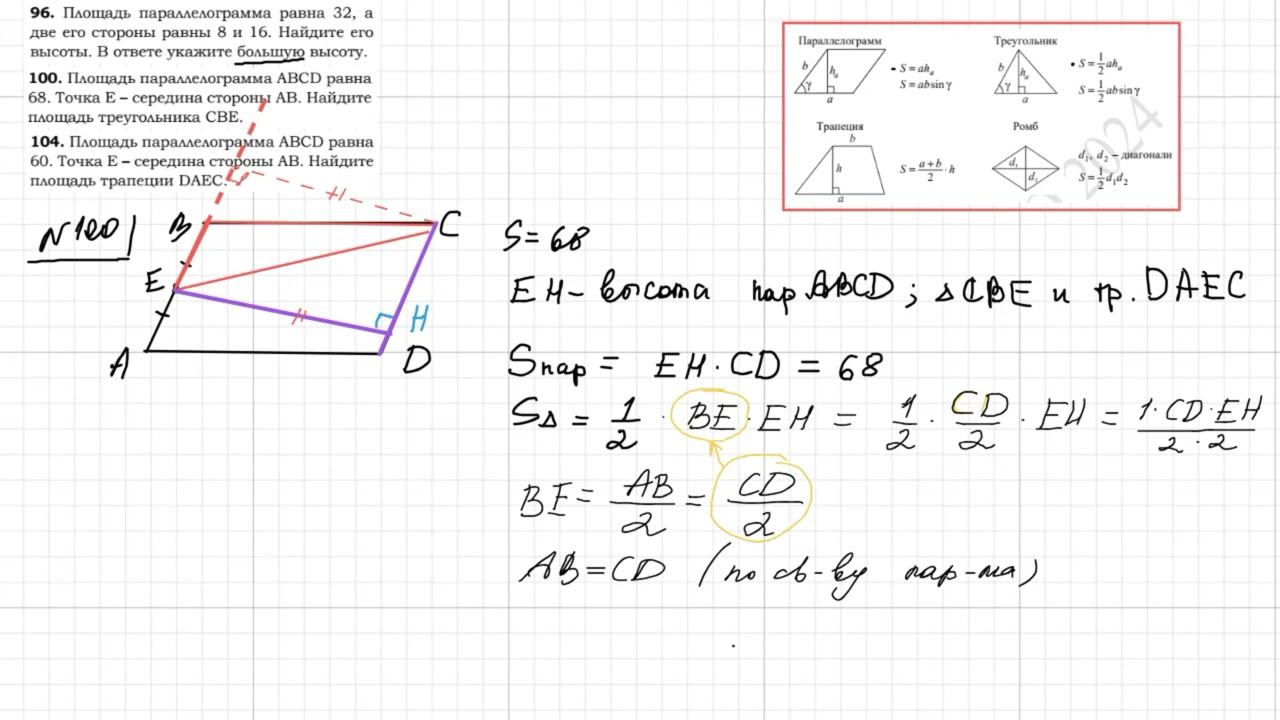 96. Площадь параллелограмма равна 32, а
две его стороны равны 8 и 16. Найдите его
высоты. В ответе укажите большую высоту.
100. Площадь параллелограмма ABCD равна
68. Точка E – середина стороны AB. Найдите
площадь треугольника CBE.
104. Площадь параллелограмма ABCD равна
60. Точка E – середина стороны AB. Найдите
площадь трапеции DAEC.
Параллелограмм
b
hₐ
γ
a
• S = ahₐ
S = ab sin γ
Треугольник
b
hₐ
γ
a
• S = 1/2 ahₐ
S = 1/2 ab sin γ
Трапеция
b
h
a
S = (a + b)/2 · h
Ромб
d₁
d₂
d₁, d₂ – диагонали
S = 1/2 d₁d₂
2024
N100
B
C
E
H
A
D
S = 68
EH – высота пар. ABCD; △CBE и тр. DAEC
Sпар = EH · CD = 68
S△ = 1/2 · BE · EH = 1/2 · CD/2 · EH = 1·CD·EH/2·2
BE = AB/2 = CD/2
AB = CD (по св-ву пар-ма)